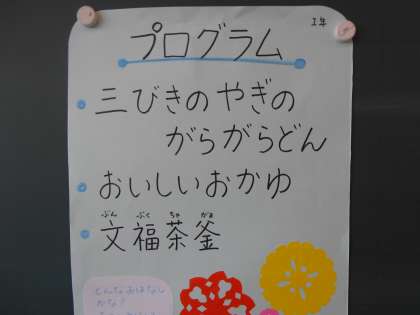 1年
プログラム
三びきのやぎの
がらがらどん
おいしいおかゆ
ぶん ぶく ちゃ がま
文福茶釜
どんなおはなし
かな?